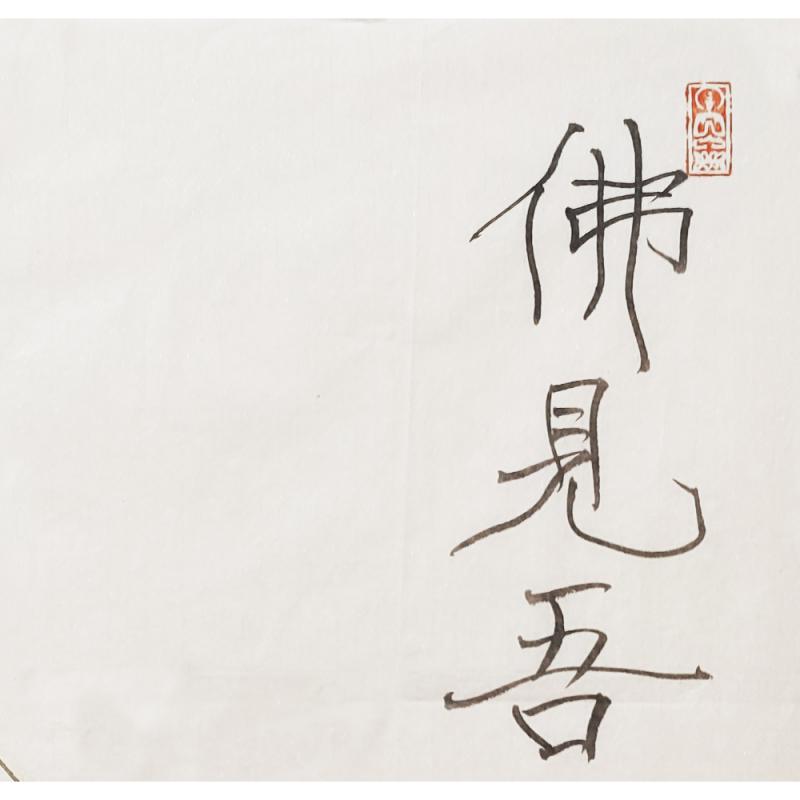 佛見吾